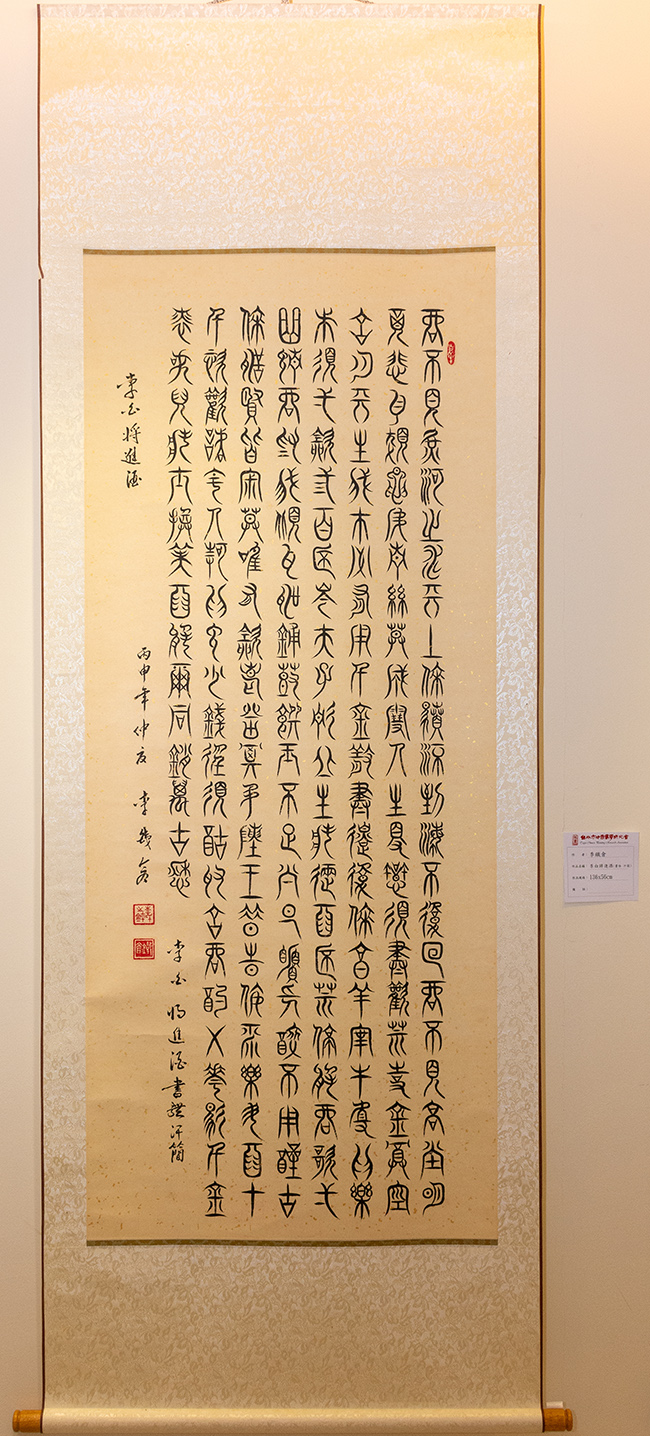 君不見黃河之水天上來奔流到海不復回君不見高堂明
鏡悲白髮朝如青絲莫成雪人生得意須盡歡莫使金尊空
對月天生我材必有用千金散盡還復來烹羊宰牛且為樂
會須一飲三百杯岑夫子丹丘生將進酒杯莫停與君歌一
曲請君為我傾耳聽鐘鼓饌玉不足貴但願長醉不用醒古
來聖賢皆寂寞唯有飲者留其名陳王昔時宴平樂斗酒十
千恣歡謔主人何為言少錢徑須沽取對君酌五花馬千金
裘呼兒將出換美酒與爾同銷萬古愁
李白將進酒書 汗簡
李白將進酒
丙申年仲夏 李
138x56cm